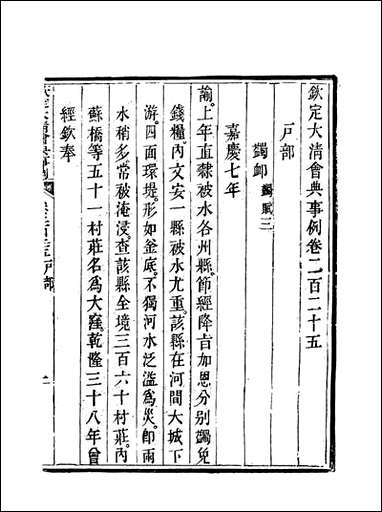 欽定大清會典事例卷二百二十五
戸部
蠲卹 蠲賦三
嘉慶七年
諭。上年直隸被水各州縣。節經降㫖加恩分别蠲免
錢糧。內文安一縣被水尤重。該縣在河間大城下
游。四面環堤。形如釜底。不獨河水泛濫爲災。卽雨
水稍多。常被淹浸。查該縣全境三百六十村莊。內
蘇橋等五十一村莊名爲大窪。乾隆三十八年曾
經欽奉
戸部